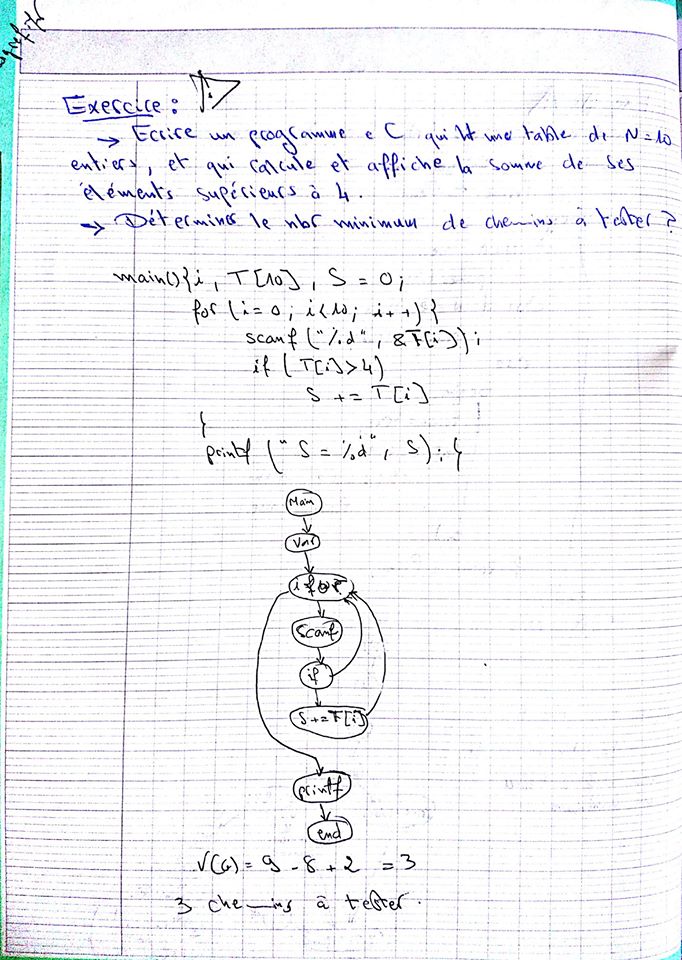 Exercice :
→ Ecrire un programme e C qui lit une table de N=10
entiers, et qui calcule et affiche la somme de ses
éléments supérieurs à 4.
→ Détermines le nbr minimum de chemins à tester ?
main(){i, T[10], S = 0;
for (i=0; i<10; i++) {
scanf ("%d", &T[i]);
if (T[i]>4)
S += T[i]
}
printf ("S = %d", S); }
Main
Var
scanf
if
S+=T[i]
printf
end
V(G) = 9 - 8 + 2 = 3
3 chemins à tester.